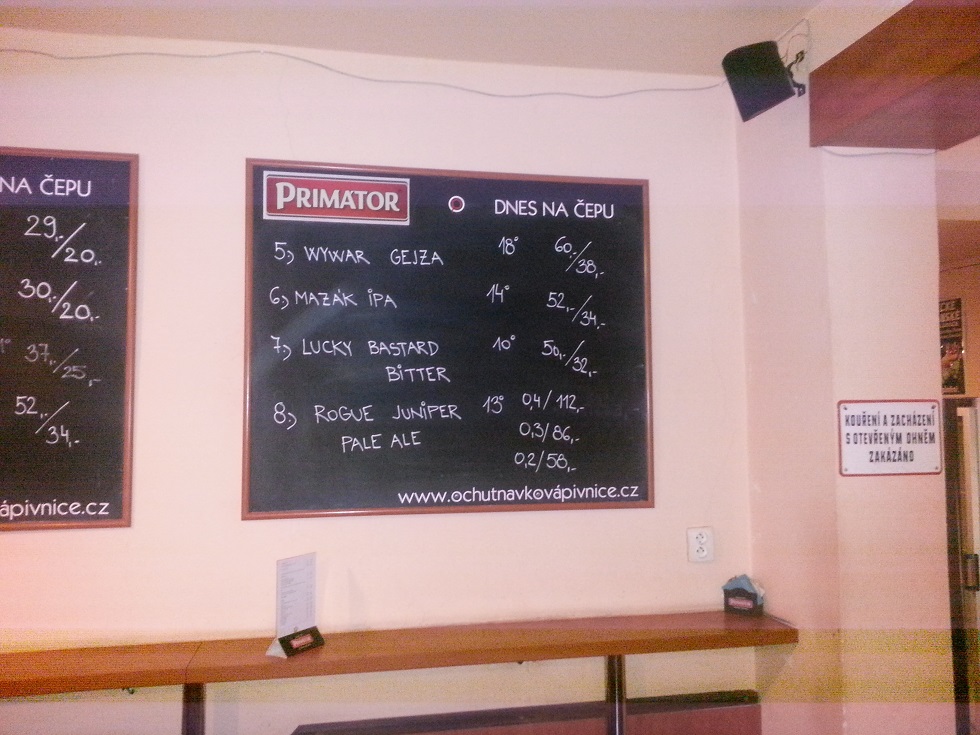 NA ČEPU
29,-/20,-
30,-/20,-
1° 37,-/25,-
52,-/34,-
ápivnice.cz
PRIMÁTOR DNES NA ČEPU
5,) WYWAR GEJZA 18° 60,-/38,-
6,) MAZÁK IPA 14° 52,-/34,-
7,) LUCKY BASTARD 10° 50,-/32,-
BITTER
8,) ROGUE JUNIPER 13° 0,4/112,-
PALE ALE 0,3/86,-
0,2/58,-
www.ochutnavkovápivnice.cz
KOUŘENÍ A ZACHÁZENÍ
S OTEVŘENÝM OHNĚM
ZAKÁZÁNO